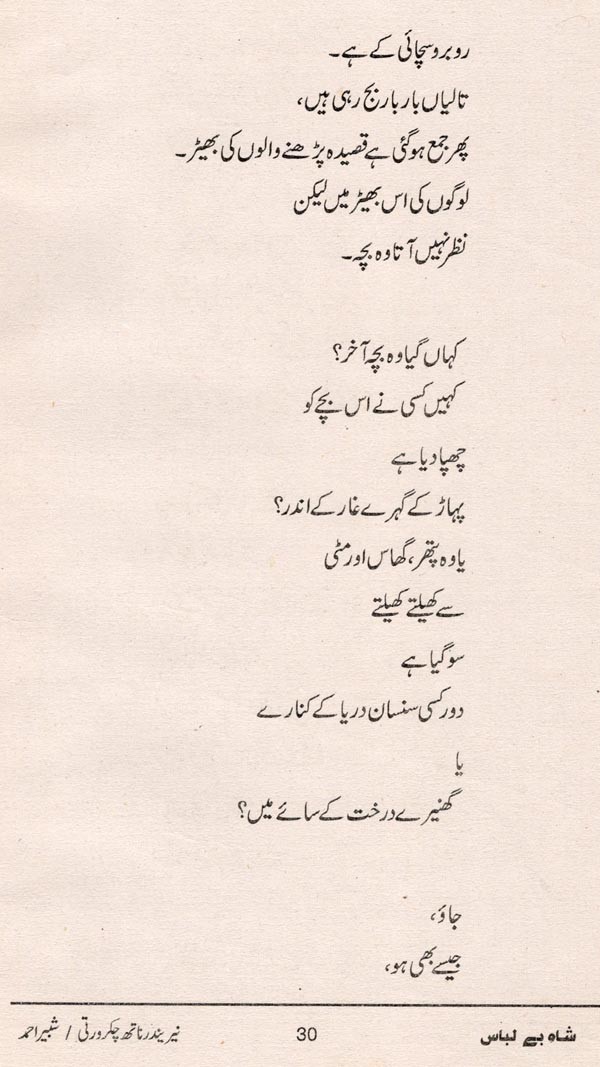 روبرو سچائی کے ہے۔
تالیاں بار بار بج رہی ہیں،
پھر جمع ہو گئی ہے قصیدہ پڑھنے والوں کی بھیڑ۔
لوگوں کی اس بھیڑ میں لیکن
نظر نہیں آتا وہ بچہ۔
کہاں گیا وہ بچہ آخر؟
کہیں کسی نے اس بچے کو
چھپا دیا ہے
پہاڑ کے گہرے غار کے اندر؟
یا وہ پتھر، گھاس اور مٹی
سے کھیلتے کھیلتے
سو گیا ہے
دور کسی سنسان دریا کے کنارے
یا
گھنیرے درخت کے سائے میں؟
جاؤ،
جیسے بھی ہو،
شاہ بے لباس 30 نیریندر ناتھ چکرورتی / شبیر احمد